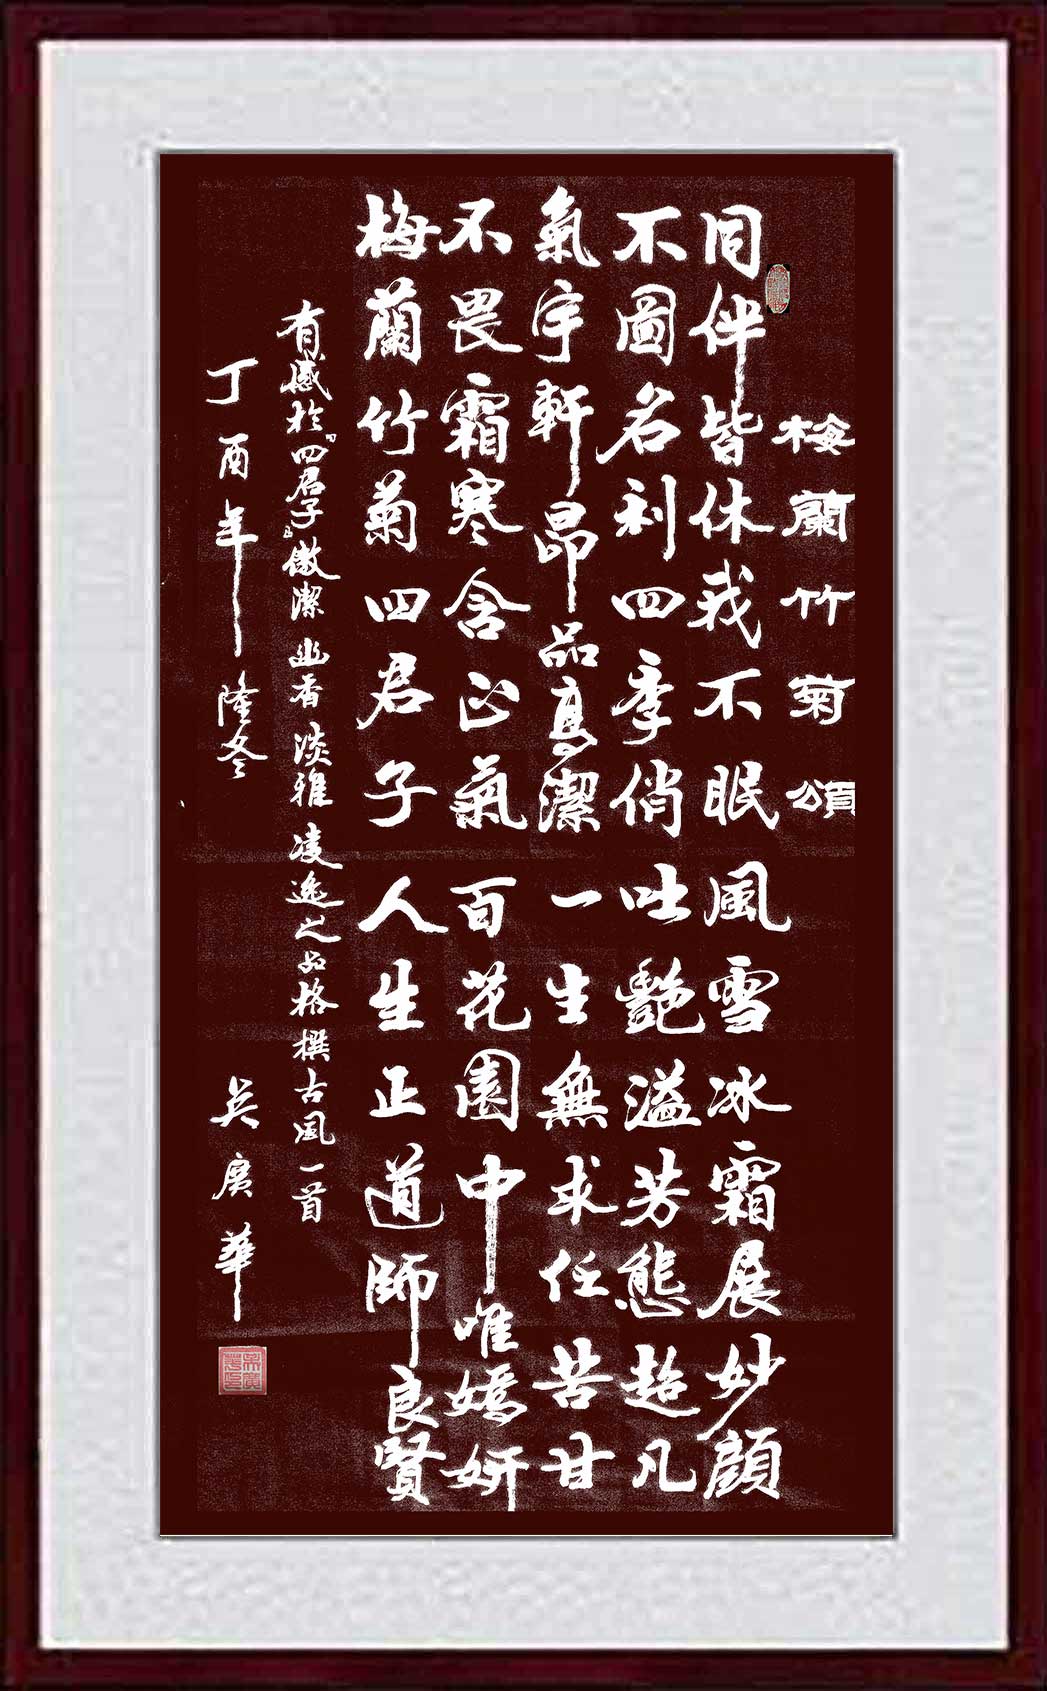 梅蘭竹菊頌
同伴皆休我不眠風雪冰霜展妙顔
不圖名利四季俏吐艷溢芳態超凡
氣宇軒昂品高潔一生無求任苦甘
不畏霜寒含正氣百花園中唯嬌妍
梅蘭竹菊四君子人生正道師良賢
有感於『四君子』傲潔幽香淡雅凌逸之品格撰古風一首
丁酉年隆冬 吴廣華